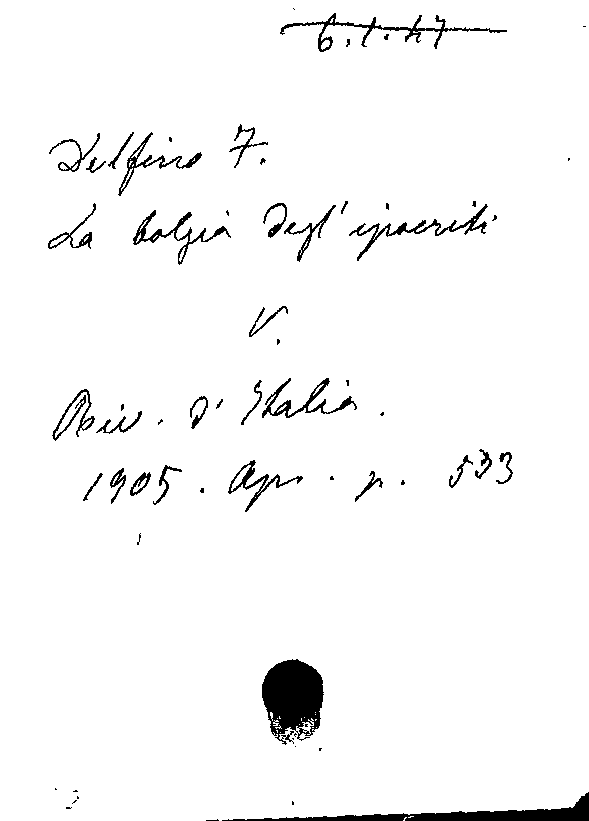 6.1.47
Delfino F.
La bolgia degl'ipocriti
V.
Riv. d'Italia.
1905. Apr. p. 533